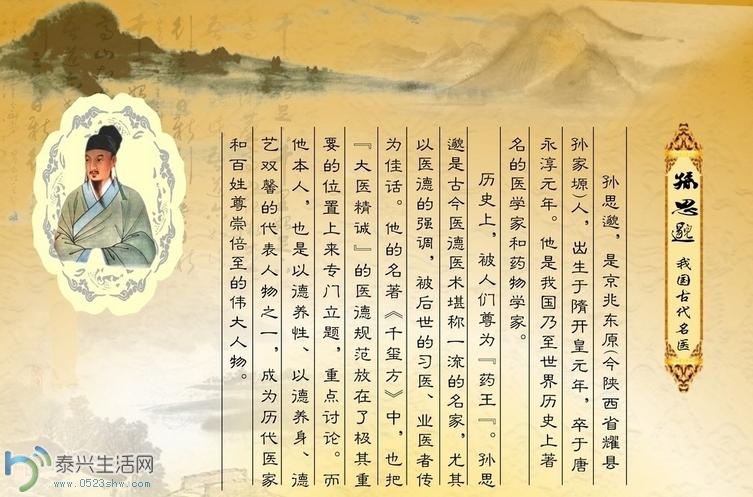 孙思邈 我国古代名医
孙思邈，是京兆东原(今陕西省耀县
孙家塬)人，出生于隋开皇元年，卒于唐
永淳元年。他是我国乃至世界历史上著
名的医学家和药物学家。
历史上，被人们尊为『药王』。孙思
邈是古今医德医术堪称一流的名家，尤其
以医德的强调，被后世的习医、业医者传
为佳话。他的名著《千玺方》中，也把
『大医精诚』的医德规范放在了极其重
要的位置上来专门立题，重点讨论。而
他本人，也是以德养性、以德养身、德
艺双馨的代表人物之一，成为历代医家
和百姓尊崇倍至的伟大人物。
泰兴生活网
www.0523shw.com